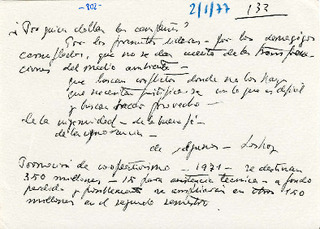 -802-
2/1/77
133
¿Por quien doblan las campanas?
Por los                      - por los demagogos
camuflados, que no se dan cuenta de las transfor-
ciones del medio ambiente -
que buscan conflictos donde no los hay
que necesitan justificarse en lo que es difícil
y buscan sacar provecho -
de la ingenuidad - de la buena fe -
de la ignorancia -
de algunos -
Promoción de cooperativismo - 1971 - se destinan
350 millones - 15 para asistencia técnica a fondo
perdido y posiblemente se ampliarán en otros 150
millones en el segundo semestre.